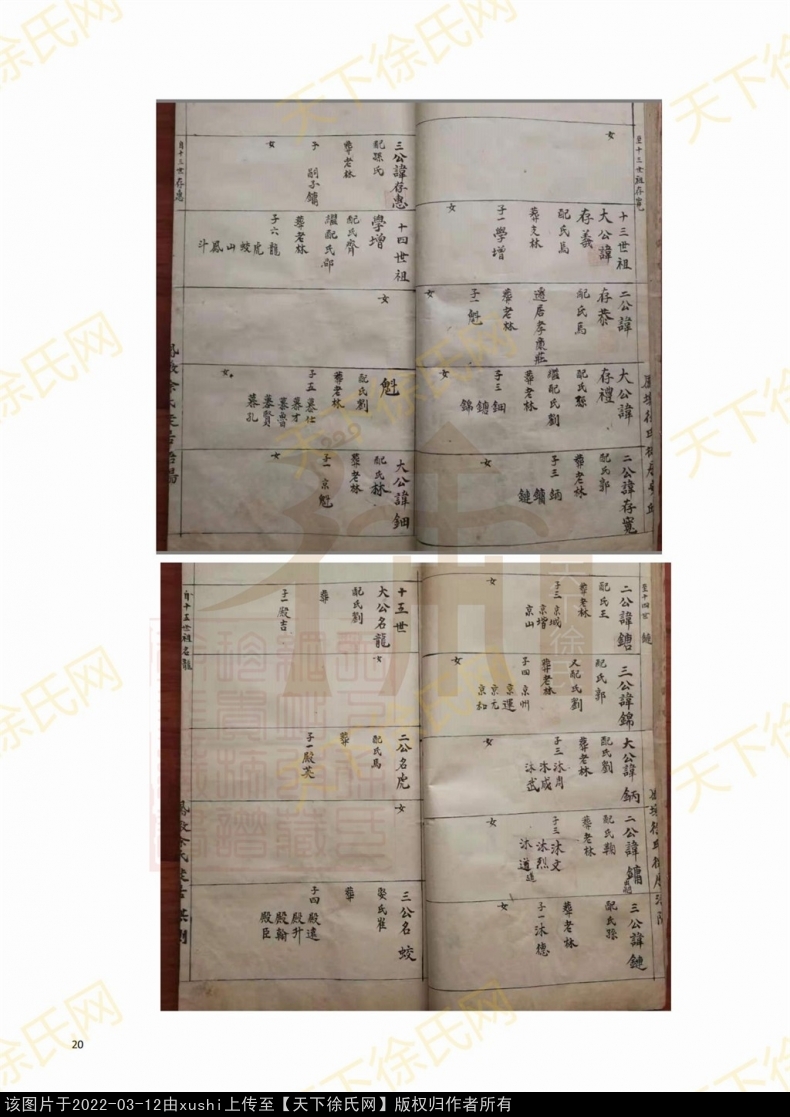 至十三世祖存寬
女
十三世祖
大公諱
存義
配氏馬
葬文林
子一學增
女
二公諱
存恭
配氏馬
遷居孝康莊
葬老林
子一魁
女
大公諱
存禮
配氏縣
繼配氏劉
葬老林
子三鈿
鏸
錦
女
二公諱存寬
配氏郭
葬老林
子三鈵
鏞
鏈
女
自十三世存惠
三公諱存惠
配孫氏
葬老林
子 嗣子鏞
女
十四世祖
學增
配氏齊
繼配氏邵
葬老林
子六龍
虎
蛟
山
鳳
斗
女
魁
配氏劉
葬老林
子五慕仕
慕才
慕魯
慕賢
慕孔
女
大公諱鈿
配氏林
葬老林
子一京魁
女
至十四世 鏈
二公諱鏸
配氏王
葬老林
子三京城
京增
京山
女
三公諱錦
配氏郭
又配氏劉
葬老林
子四京州
京蓮
京元
京和
女
大公諱鈵
配氏劉
葬老林
子三沐周
沐成
沐武
女
二公諱鏞
配氏鞠
葬老林
子三沐文
沐烈
沐道
女
三公諱鏈
配氏孫
葬老林
子一沐德
女
自十五世祖名龍
十五世
大公名龍
配氏劉
葬
子一殿吉
女
二公名虎
配氏馬
葬
子一殿英
女
三公名蛟
娶氏崔
葬
子四殿遠
殿升
殿翰
殿臣
20
天下徐氏网
该图片于2022-03-12由xushi上传至【天下徐氏网】版权归作者所有